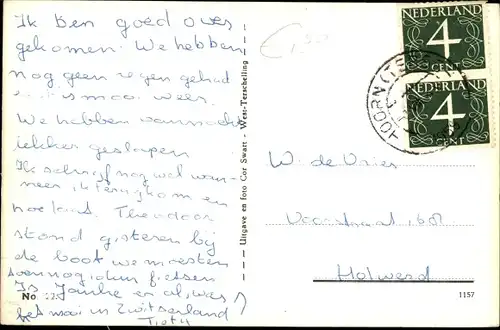 Ik ben goed over
gekomen. We hebben
nog geen regen gehad
en 't is mooi weer.
We hebben vannacht
lekker geslapen
Ik schrijf nog wel wan-
neer ik terugkom en
hoe laat. Theodoor
stond gisteren bij
de boot we moesten
nog fietsen
Is Janke er al, was
het mooi in Zwitserland?
No. 125
Uitgave en foto Cor Swart - West-Terschelling
NEDERLAND
4
CENT
NEDERLAND
4
CENT
HOORN (TER
W. de Vries
Voorstraat
Holwerd
1157